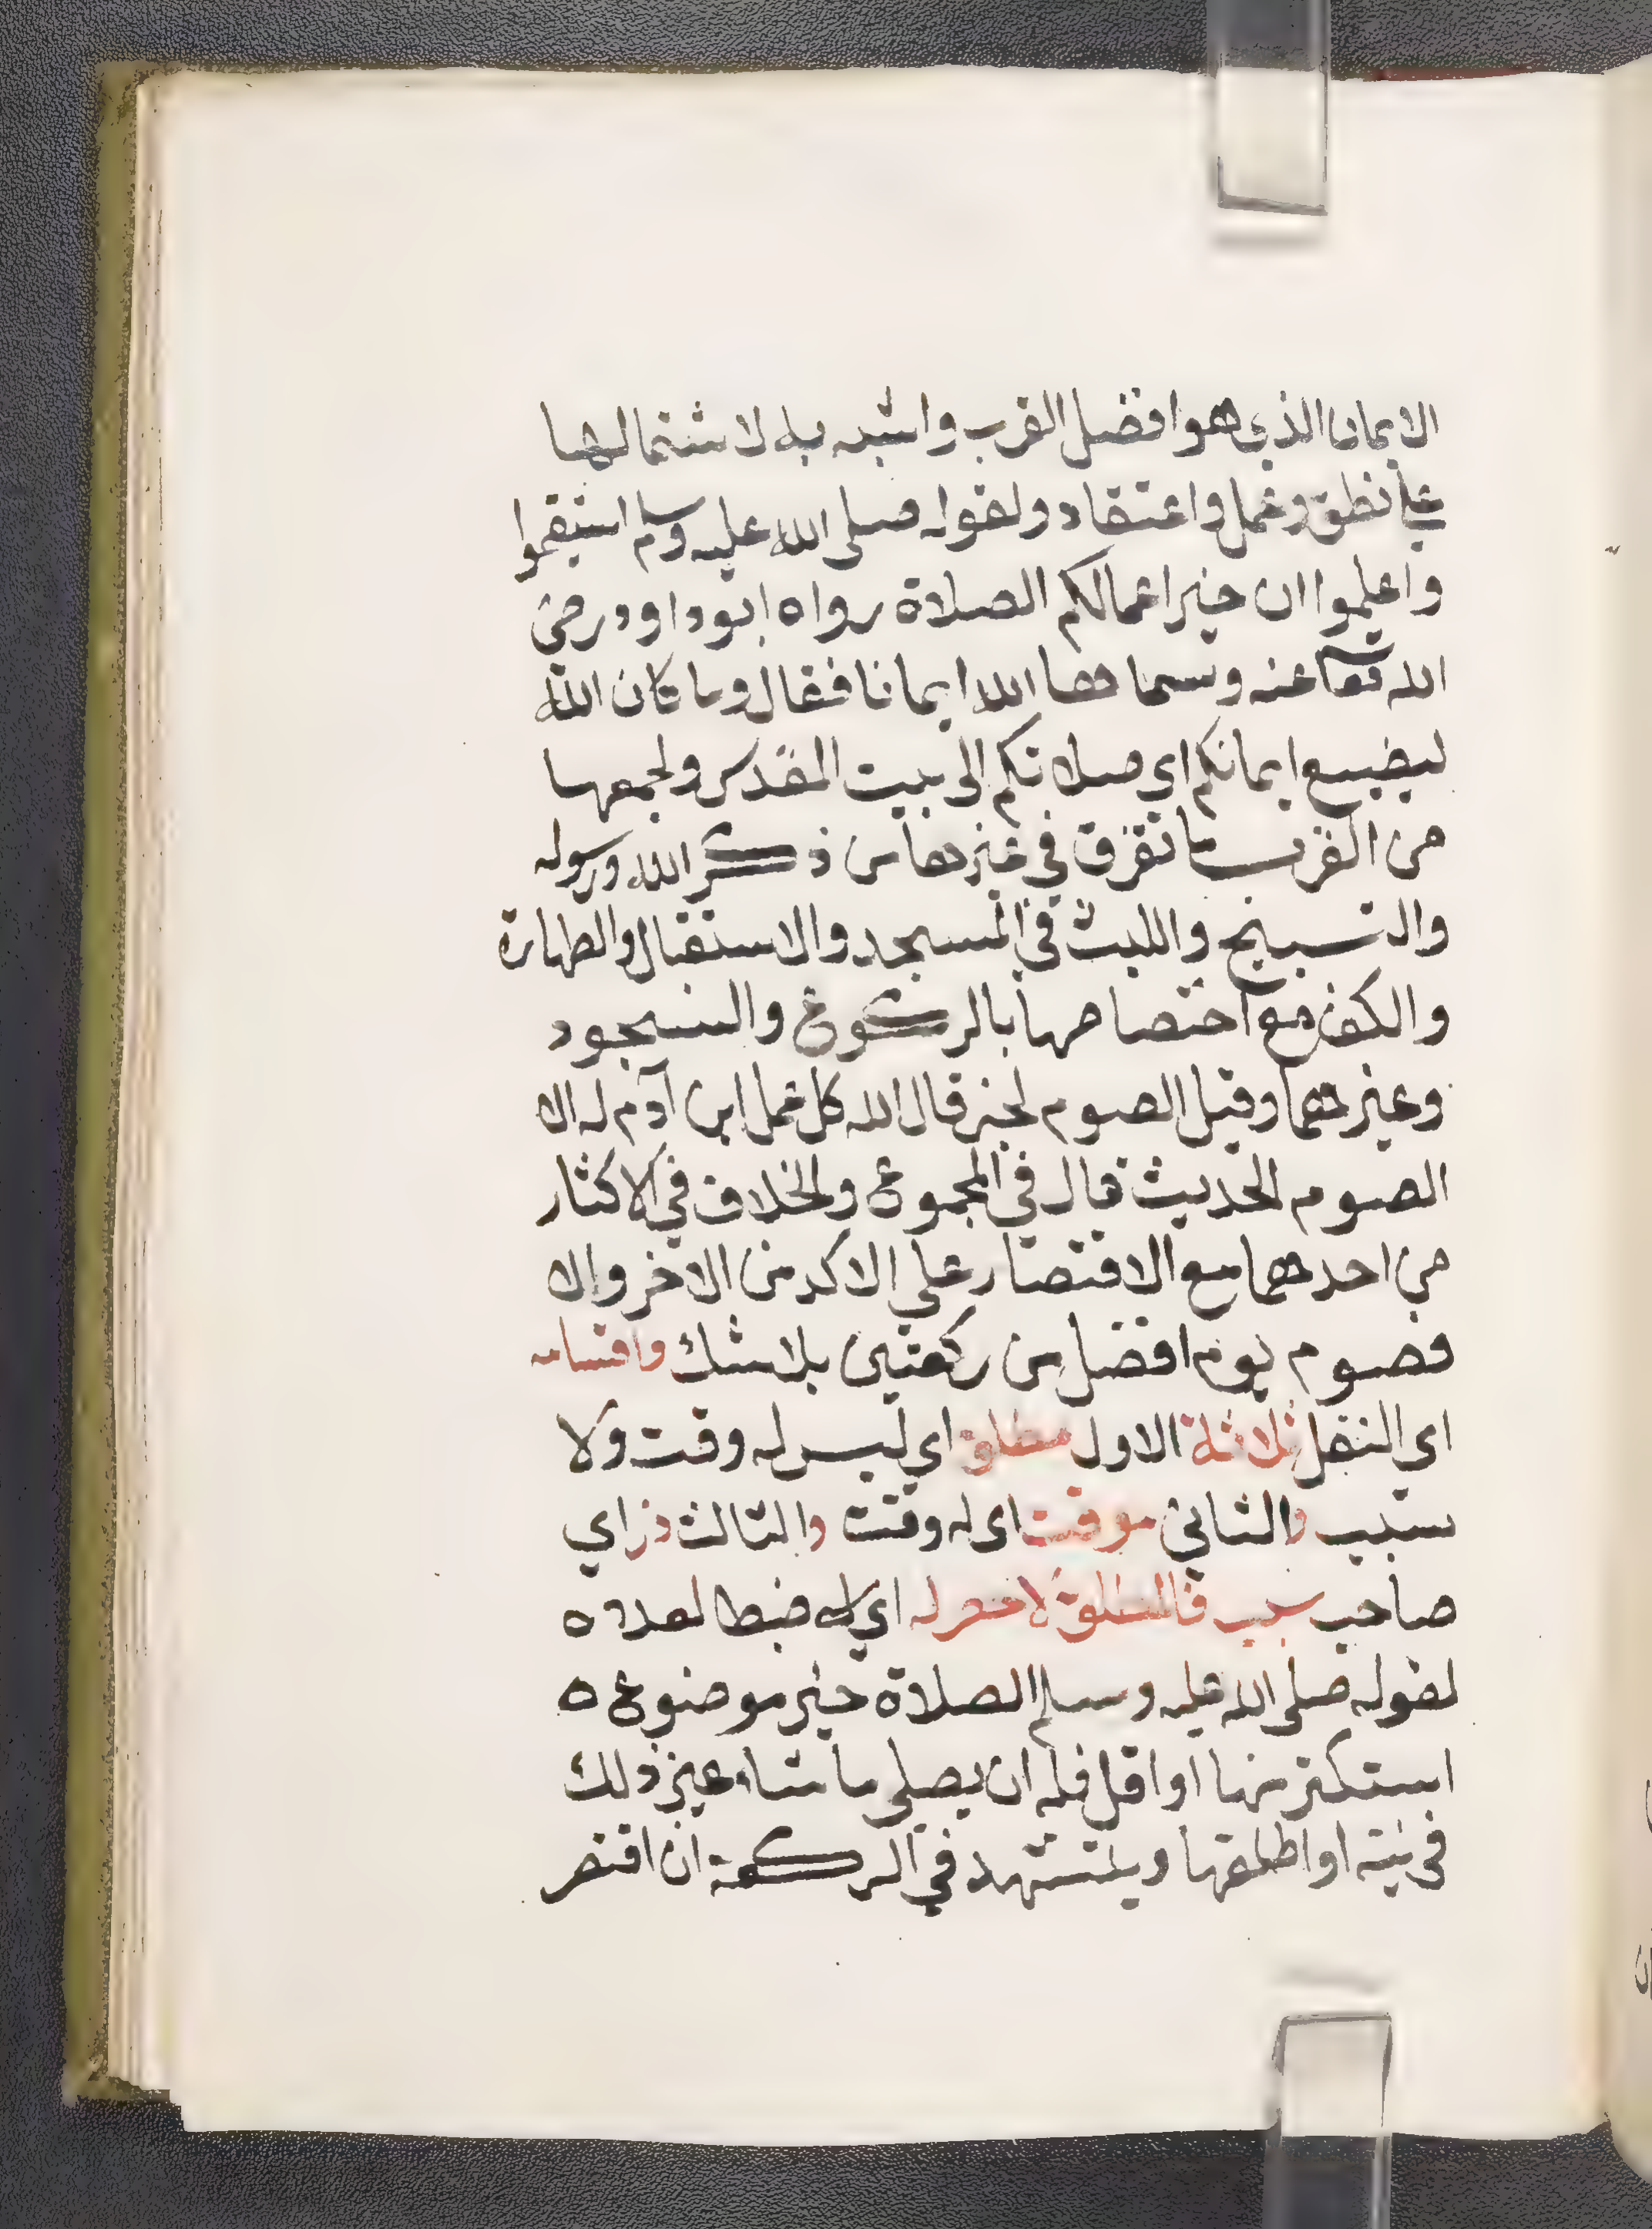 الايمان الذي هو افضل القرب واشبه به لاشتمالها
علي نطق وعمل واعتقاد ولقوله صلى الله عليه وسلم استقيموا
واعلموا ان خير اعمالكم الصلاة رواه ابوداود رضي
الله تعا عنه وسماها الله ايمانا فقال وما كان الله
ليضيع ايمانكم اي صلاتكم الى بيت المقدس ولجمعها
من القرب ما تفرق في غيرها من ذكر الله ورسوله
والتسبيح واللبث في المسجد والاستقبال والطهارة
والكف مع اختصاصها بالركوع والسجود
وغيرهما وقيل الصوم لخبر قال الله كل عمل ابن آدم له الا
الصوم الحديث قال في المجموع والخلاف في الاكثار
من احدهما مع الاقتصار علي الاكد من الاخر والا
فصوم يوم افضل من ركعتين بلا شك واقسامه
اي النفل ثلاثة الاول مطلق اي ليس له وقت ولا
سبب والثاني موقت اي له وقت والثالث ذو اي
صاحب سبب فالمطلق لا حصر له اي لا ضبط لعدده
لقوله صلى الله عليه وسلم الصلاة خير موضوع ه
استكثر منها او اقل فله ان يصلي ما شاء عين ذلك
في نيته او اطلقها ويتشهد في الركعة ان اقتصر